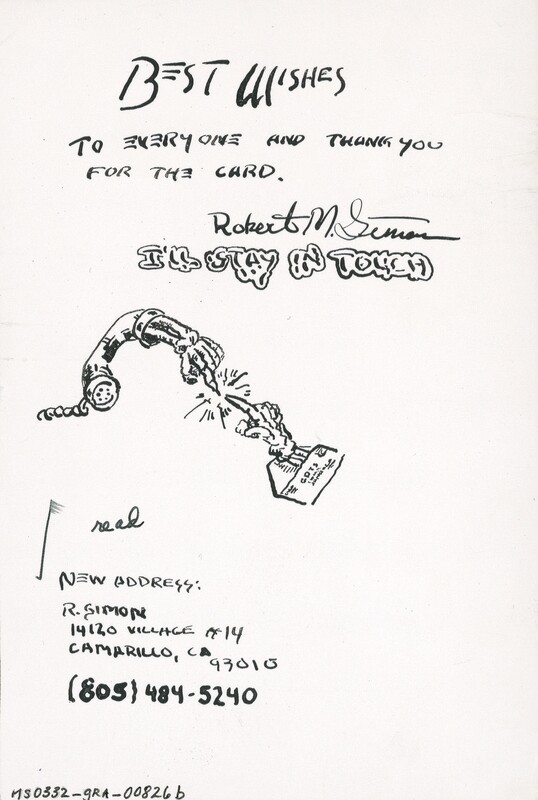 BEST WISHES
TO EVERYONE AND THANK YOU
FOR THE CARD.
Robert M. Simon
I'LL STAY IN TOUCH
GDTS
read
NEW ADDRESS:
R. SIMON
14120 VILLAGE #14
CAMARILLO, CA
93010
(805) 484-5240
MS0332-GRA-00826b